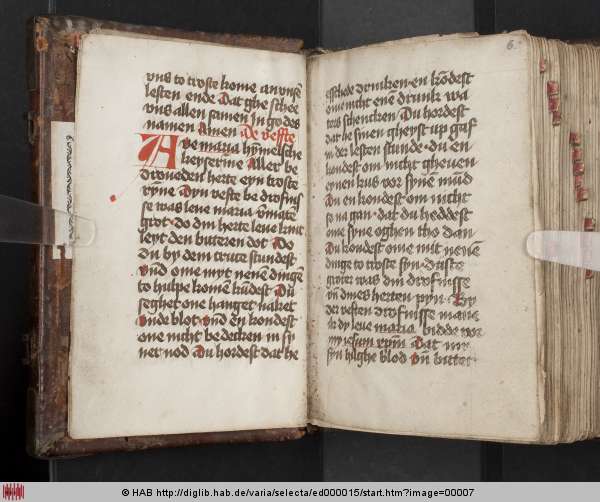 vns to troste kome an vnsen
lesten ende Dat ghe schee
vns allen samen In godes
namen Amen De veffte
Aue maria hymelsche
keyserinne Aller be
droueden herte eyn troste
rynne Dyn vefte be drofnis
se was leue maria
grot do din herte leue kint
leyt den bitteren dot Do
Du by dem cruce stundest
vnd ome myt nenē dingē
to hulpe komē kūdest Du
seghest one hanget naket
vnde blot vnd en kondest
one nicht be decken in sy
ner nod Du hordest dat he
6
esschede drinken en kōdest
ome nicht enē drunk wa
ters schencken Du hordest
dat he sinen gheyst up gaf
in der lesten stunde du en
kondest om nicht gheuen
eynen kus vor synē mūd
Du en kondest om nicht
so na gan dat du heddest
ome syne oghen tho dan
Du kondest ome mit nenē
dinge to troste syn Duste
groter was din drofnisse
vn dines herten pyn By
der veften drofnisse mane
ik dy leue maria bidde vor
my ihesum Dat my
syn hilghe blod vn bitter
© HAB http://diglib.hab.de/varia/selecta/ed000015/start.htm?image=00007